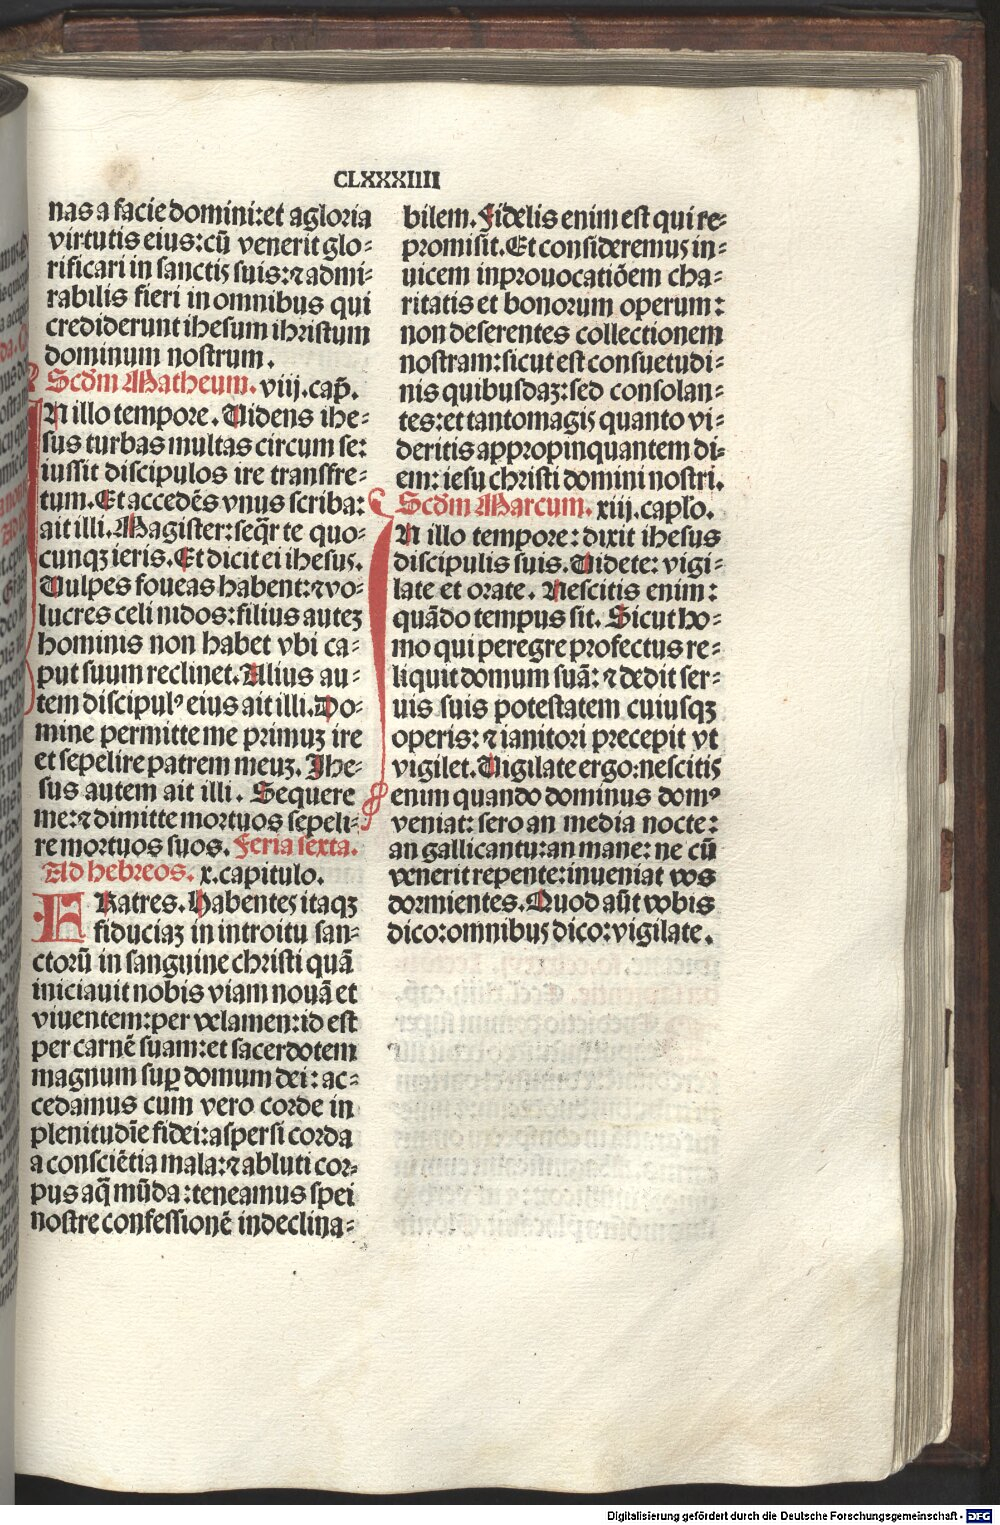 CLXXXIIII
nas a facie domini:et a gloria
virtutis eius:cū venerit glo⸗
rificari in sanctis suis:⁊ admi⸗
rabilis fieri in omnibus qui
crediderunt ihesum ihristum
dominum nostrum.
Scdm Matheum. viij. cap̄.
In illo tempore. Uidens ihe⸗
sus turbas multas circum se:
iussit discipulos ire transfre⸗
tum. Et accedēs vnus scriba:
ait illi. Magister:seq̄r te quo⸗
cunqꝫ ieris. Et dicit ei ihesus.
Uulpes foueas habent:⁊ vo⸗
lucres celi nidos:filius auteꝫ
hominis non habet vbi ca⸗
put suum reclinet. Alius au⸗
tem discipulꝰ eius ait illi. Do⸗
mine permitte me primuꝫ ire
et sepelire patrem meuꝫ. Ihe⸗
sus autem ait illi. Sequere
me:⁊ dimitte mortuos sepeli⸗
re mortuos suos. Feria sexta.
Ad hebreos. x. capitulo.
FRatres. Habentes itaqꝫ
fiduciaꝫ in introitu san⸗
ctorū in sanguine christi quā
iniciauit nobis viam nouā et
viuentem:per velamen:id est
per carnē suam:et sacerdotem
magnum suꝑ domum dei: ac⸗
cedamus cum vero corde in
plenitudīe fidei:aspersi corda
a consciētia mala:⁊ abluti cor⸗
pus aq̄ mūda:teneamus spei
nostre confessionē indeclina⸗
bilem. Fidelis enim est qui re⸗
promisit. Et consideremus in⸗
uicem inprouocatiōem cha⸗
ritatis et bonorum operum:
non deserentes collectionem
nostram:sicut est consuetudi⸗
nis quibusdaꝫ:sed consolan⸗
tes:et tantomagis quanto vi⸗
deritis appropinquantem di⸗
em: iesu christi domini nostri.
Scdm Marcum. xiij. capl̓o.
In illo tempore: dixit ihesus
discipulis suis. Uidete: vigi⸗
late et orate. Nescitis enim:
quādo tempus sit. Sicut ho⸗
mo qui peregre profectus re⸗
liquit domum suā: ⁊ dedit ser⸗
uis suis potestatem cuiusqꝫ
operis: ⁊ ianitori precepit vt
vigilet. Uigilate ergo:nescitis
enim quando dominus domꝰ
veniat: sero an media nocte:
an gallicantu:an mane: ne cū
venerit repente:inueniat vos
dormientes. Quod aūt vobis
dico:omnibus dico:vigilate.
Digitalisierung gefördert durch die Deutsche Forschungsgemeinschaft - DFG